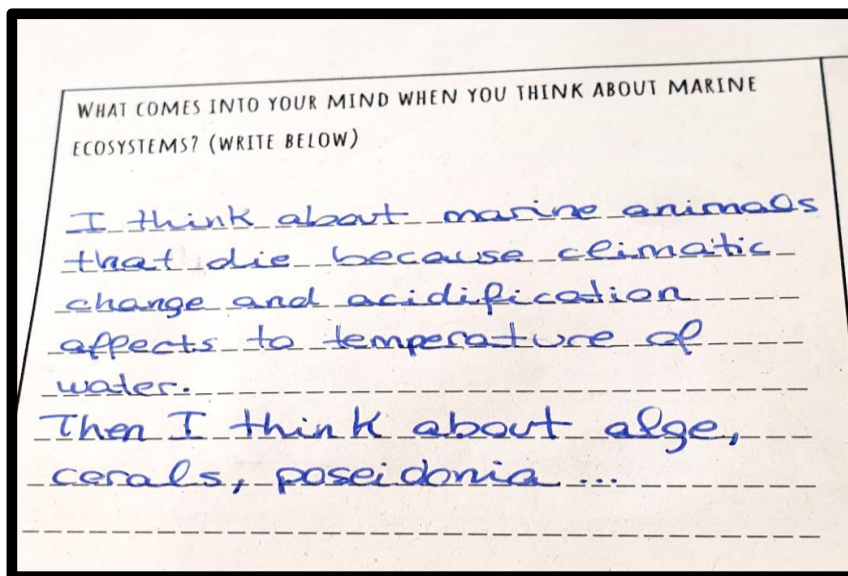 WHAT COMES INTO YOUR MIND WHEN YOU THINK ABOUT MARINE
ECOSYSTEMS? (WRITE BELOW)
I think about marine animals
that die because climatic
change and acidification
affects to temperature of
water.
Then I think about alge,
cerals, poseidonia ...